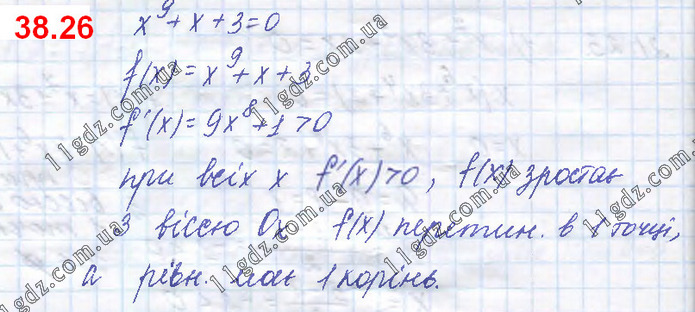 38.26
x⁹ + x + 3 = 0
f(x) = x⁹ + x + 3
f'(x) = 9x⁸ + 1 > 0
при всіх x f'(x) > 0, f(x) зростає
З віссю Ox f(x) перетин. в 1 точці,
а рівн. має 1 корінь.
11gdz.com.ua
11gdz.com.ua
11gdz.com.ua
11gdz.com.ua
11gdz.com.ua
11gdz.com.ua